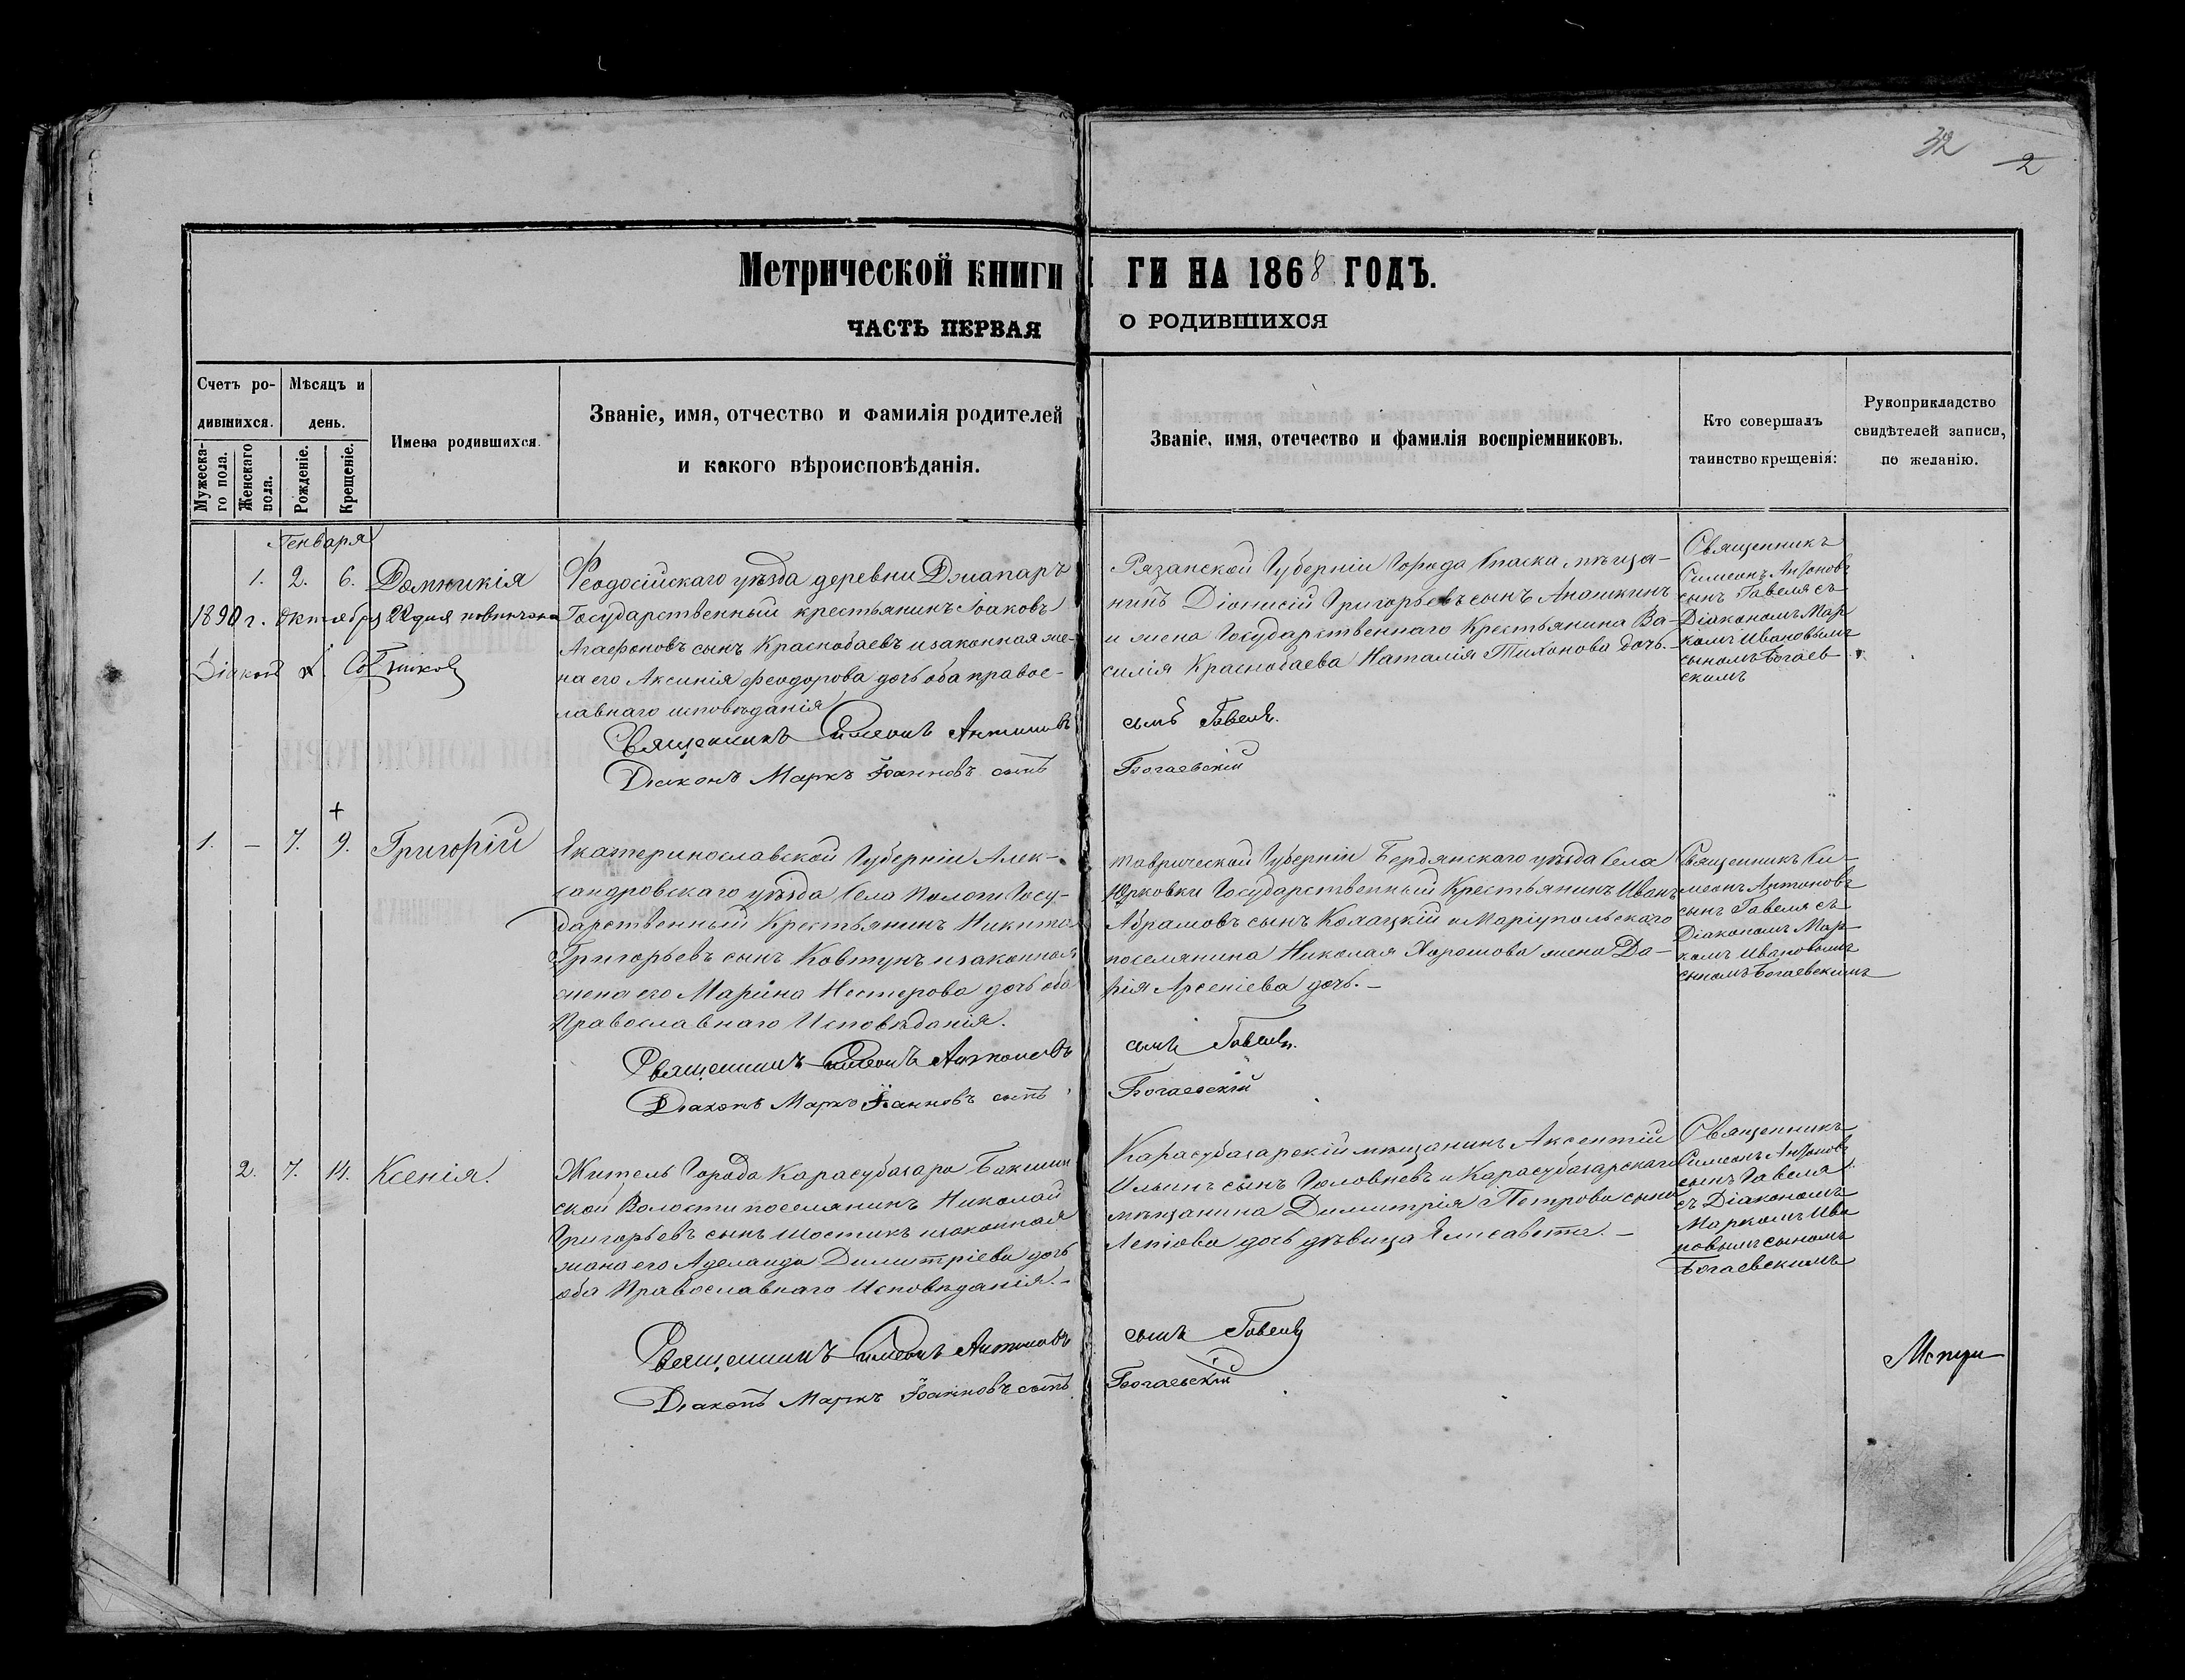 32 2
Метрической книги
ГИ НА 1868 ГОДЪ.
ЧАСТЬ ПЕРВАЯ
О РОДИВШИХСЯ
Счетъ ро-
дившихся.
Мужеска-
го пола.
Женскаго
пола.
Мѣсяцъ и
день.
Рожденіе.
Крещеніе.
Имена родившихся.
Званіе, имя, отчество и фамилія родителей
и какого вѣроисповѣданія.
Званіе, имя, отечество и фамилія воспріемниковъ.
Кто совершалъ
таинство крещенія:
Рукоприкладство
свидѣтелей записи,
по желанію.
Генваря
1. 2. 6. Домникія
1890 г. Октября 22 дня повѣнчана
Діаконъ
Феодосійскаго уѣзда деревни Джапаръ
Государственный крестьянинъ Іоаковъ
Агафоновъ сынъ Краснобаевъ и законная же-
на его Аксинія Феодорова дочь оба правос-
лавнаго исповѣданія
Священникъ Симеонъ Антоновъ
Діаконъ Маркъ Іоанновъ сынъ
Рязанской Губерніи Города Спаска, мѣща-
нинъ Діонисій Григорьевъ сынъ Анашкинъ
и жена Государственнаго Крестьянина Ва-
силія Краснобаева Наталія Тихонова дочь.-
сынъ Гавеля.
Богаевскій
Священникъ
Симеонъ Антоновъ
сынъ Гавеля съ
Діакономъ Мар
комъ Ивановымъ
сыномъ Богаев
скимъ
1. – 7. 9. Григорій
Екатеринославской Губерніи Алек-
сандровскаго уѣзда Села Пологи Госу-
дарственный Крестьянинъ Никита
Григорьевъ сынъ Ковтунъ и законная
жена его Марина Нестерова дочь оба
Православнаго Исповѣданія.
Священникъ Симеонъ Антоновъ
Діаконъ Маркъ Іоанновъ сынъ
Таврической Губерніи Бердянскаго уѣзда Села
Юрковки Государственный Крестьянинъ Иванъ
Абрамовъ сынъ и Маріупольскаго
поселянина Николая Хорошова жена Да-
рія Арсеніева дочь.-
сынъ Гавеля.
Богаевскій
Священникъ Си-
меонъ Антоновъ
сынъ Гавеля съ
Діакономъ Мар-
комъ Ивановымъ
сыномъ Богаевскимъ
2. 7. 14. Ксенія.
Житель Города Карасубазара
ской Волости поселянинъ Николай
Григорьевъ сынъ Шостикъ и законная
жена его Аделаида Димитріева дочь
оба Православнаго Исповѣданія.-
Священникъ Симеонъ Антоновъ
Діаконъ Маркъ Іоанновъ сынъ
Карасубазарскій мѣщанинъ Аксентій
Ильинъ сынъ Головневъ и Карасубазарскаго
мѣщанина Димитрія Петрова сына
дочь дѣвица Елисавета.-
сынъ Гавеля
Богаевскій
Священникъ
Симеонъ Антоновъ
сынъ Гавеля
съ Діакономъ
Маркомъ Ива
новымъ сыномъ
Богаевскимъ